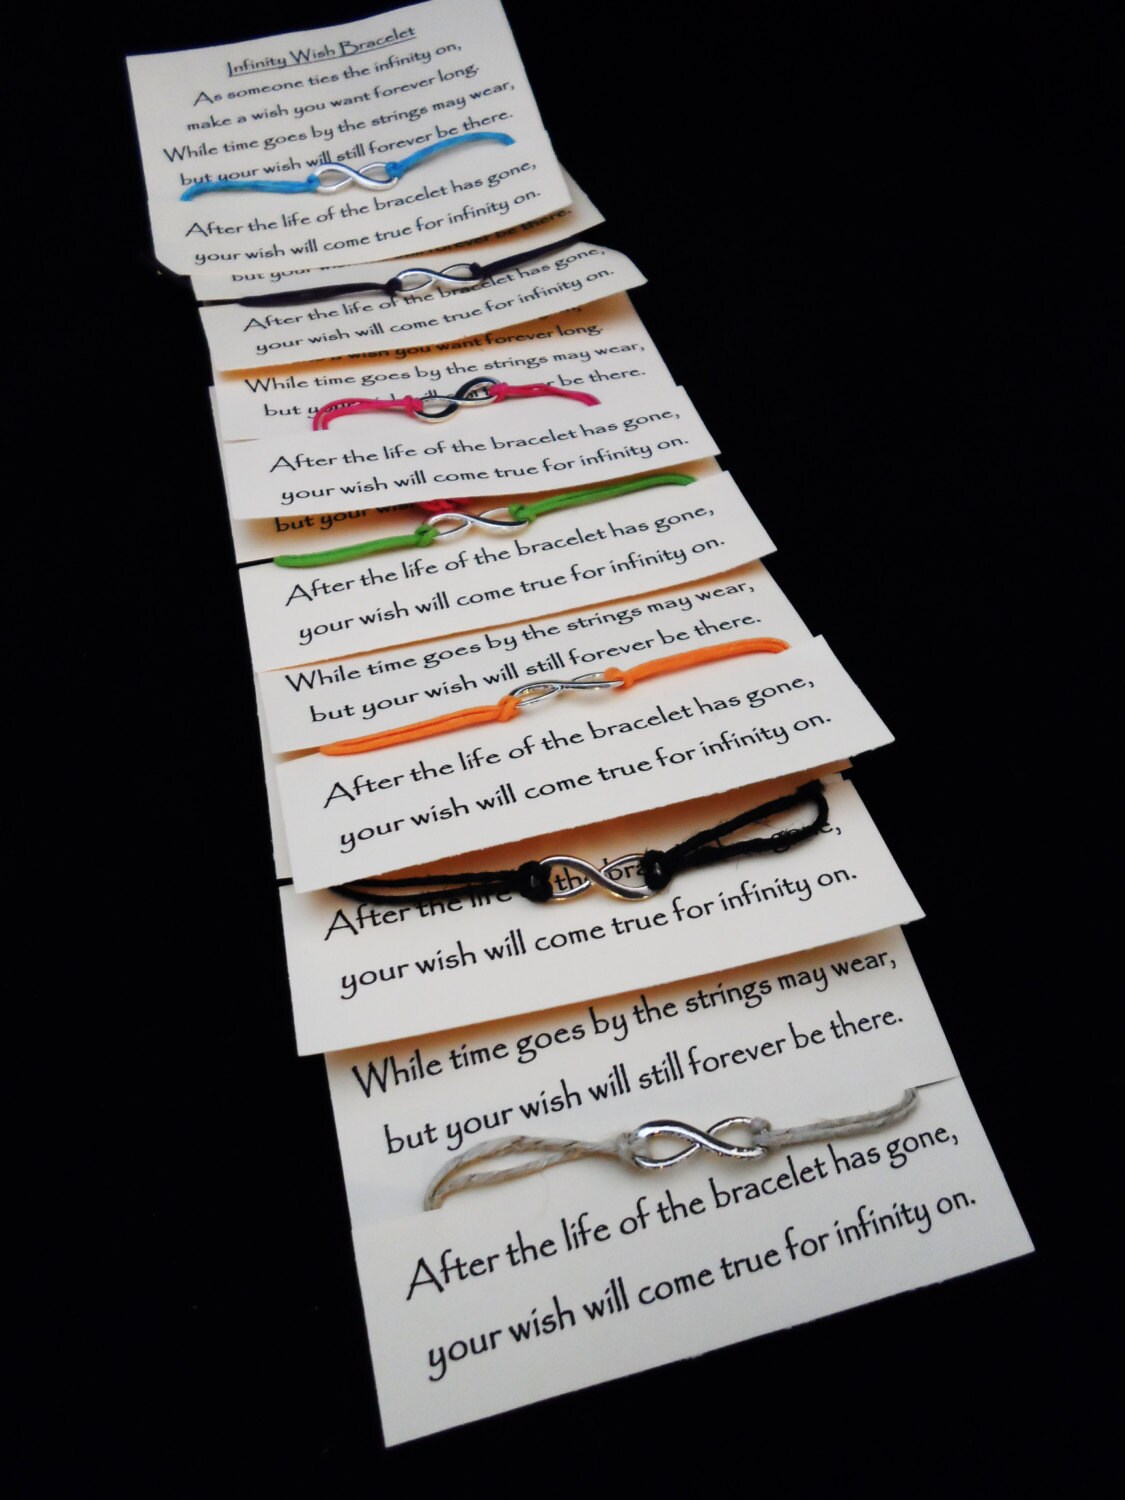 Infinity Wish Bracelet
As someone ties the infinity on,
make a wish you want forever long.
While time goes by the strings may wear,
but your wish will still forever be there.
After the life of the bracelet has gone,
your wish will come true for infinity on.
but your forever be there.
After the life of the bracelet has gone,
your wish will come true for infinity on.
wish you want forever long.
While time goes by the strings may wear,
but be there.
After the life of the bracelet has gone,
your wish will come true for infinity on.
but your
After the life of the bracelet has gone,
your wish will come true for infinity on.
While time goes by the strings may wear,
but your wish will still forever be there.
After the life of the bracelet has gone,
your wish will come true for infinity on.
After the life the gone,
your wish will come true for infinity on.
While time goes by the strings may wear,
but your wish will still forever be there.
After the life of the bracelet has gone,
your wish will come true for infinity on.